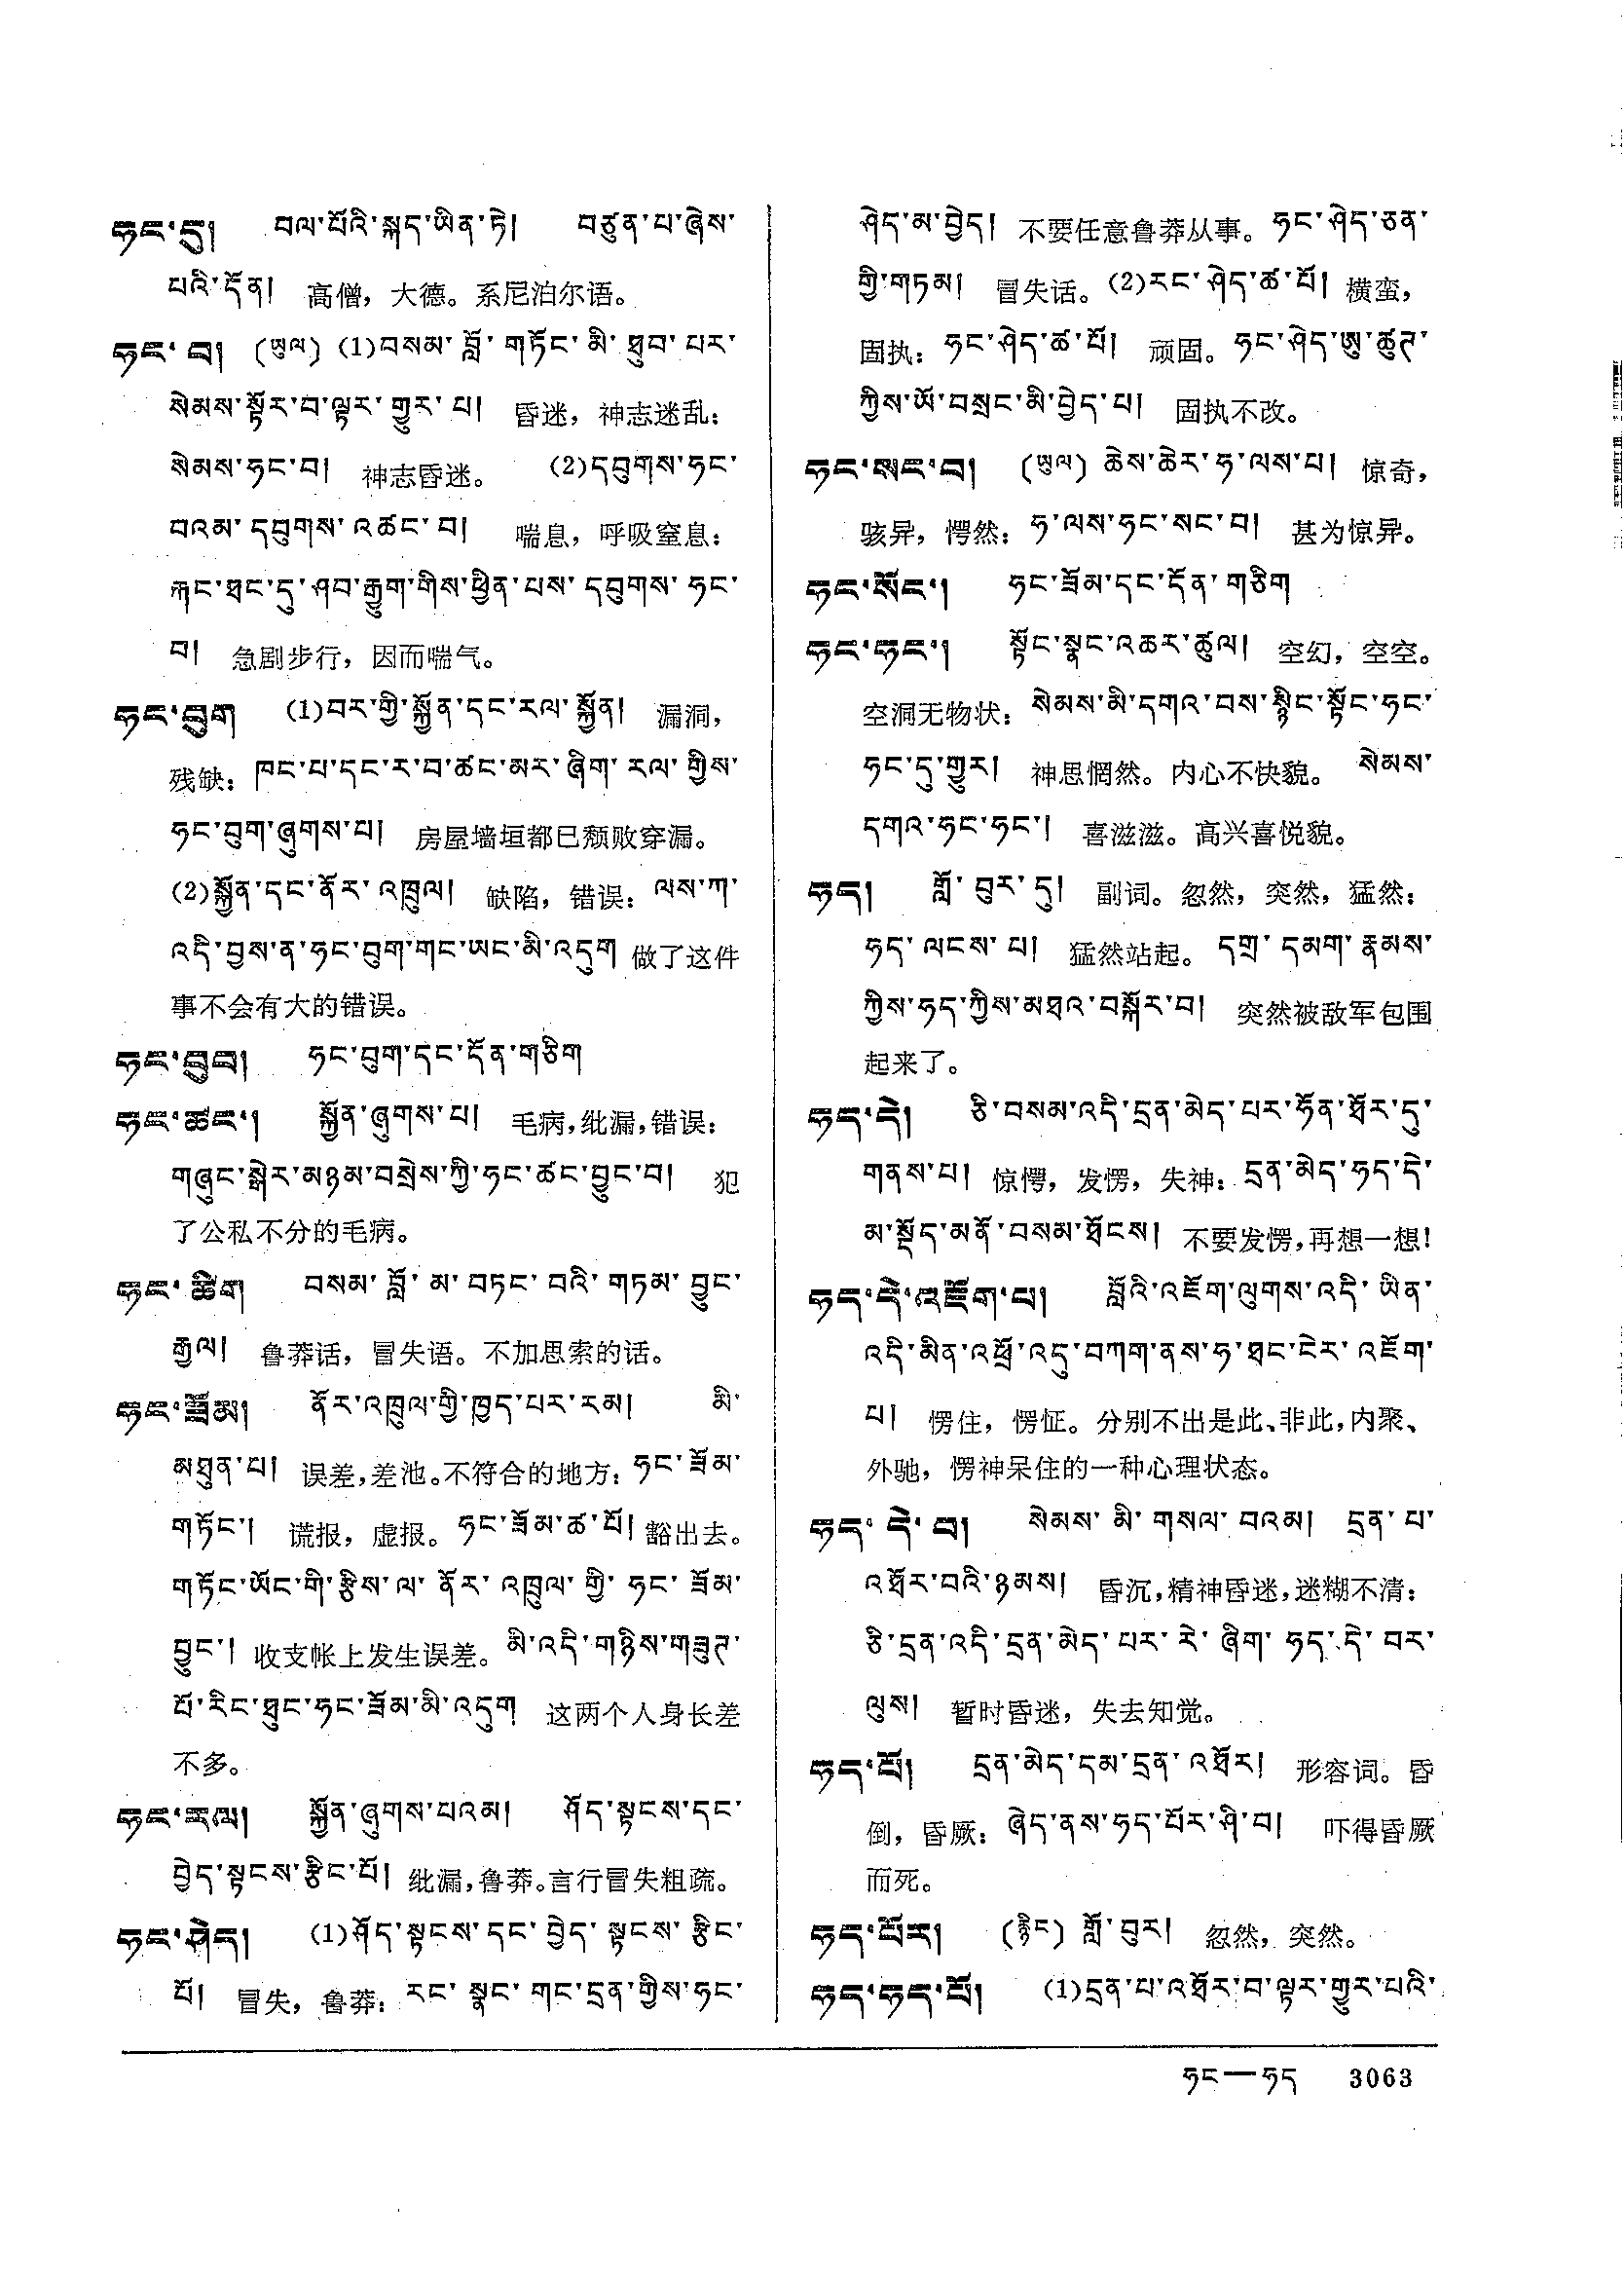 ཧང་དུ། བལ་པོའི་སྐད་ཡིན་ཏེ། བཙུན་པ་ཞེས་
པའི་དོན། 高僧，大德。系尼泊尔语。
ཧང་བ། (ཡུལ) (1)བསམ་བློ་གཏོང་མི་ཐུབ་པར་
སེམས་སྟོར་བ་ལྟར་གྱུར་པ། 昏迷，神志迷乱：
སེམས་ཧང་བ། 神志昏迷。 (2)དབུགས་ཧང་
བའམ་དབུགས་འཚང་བ། 喘息，呼吸窒息：
རྐང་ཐང་དུ་ཤབ་རྒྱུག་གིས་ཕྱིན་པས་དབུགས་ཧང་
བ། 急剧步行，因而喘气。
ཧང་བྲུག (1)བར་གྱི་སྐྱོན་དང་རལ་སྐྱོན། 漏洞，
残缺：ཁང་པ་དང་ར་བ་ཚང་མར་ཞིག་རལ་གྱིས་
ཧང་བྲུག་ཞུགས་པ། 房屋墙垣都已颓败穿漏。
(2)སྐྱོན་དང་ནོར་འཁྲུལ། 缺陷，错误：ལས་ཀ་
འདི་བྱས་ན་ཧང་བྲུག་གང་ཡང་མི་འདུག 做了这件
事不会有大的错误。
ཧང་བྲུབ། ཧང་བྲུག་དང་དོན་གཅིག
ཧང་ཚང་། སྐྱོན་ཞུགས་པ། 毛病，纰漏，错误：
གཞུང་སྒེར་མཉམ་བསྲེས་ཀྱི་ཧང་ཚང་བྱུང་བ། 犯
了公私不分的毛病。
ཧང་ཚིག བསམ་བློ་མ་བཏང་བའི་གཏམ་བྱུང་
རྒྱལ། 鲁莽话，冒失语。不加思索的话。
ཧང་ཟོམ། ནོར་འཁྲུལ་གྱི་ཁྱད་པར་རམ། མི་
མཐུན་པ། 误差，差池。不符合的地方：ཧང་ཟོམ་
གཏོང་། 谎报，虚报。ཧང་ཟོམ་ཚ་པོ། 豁出去。
གཏོང་ཡོང་གི་རྩིས་ལ་ནོར་འཁྲུལ་གྱི་ཧང་ཟོམ་
བྱུང་། 收支帐上发生误差。མི་འདི་གཉིས་གཟུཊ་
པོ་རིང་ཐུང་ཧང་ཟོམ་མི་འདུག 这两个人身长差
不多。
ཧང་རལ། སྐྱོན་ཞུགས་པའམ། ཤོད་སྟངས་དང་
བྱེད་སྟངས་རྩིང་པོ། 纰漏，鲁莽。言行冒失粗疏。
ཧང་ཤེད། (1)ཤོད་སྟངས་དང་བྱེད་སྟངས་རྩིང་
པོ། 冒失，鲁莽：རང་སྣང་གང་དྲན་གྱིས་ཧང་
ཤེད་མ་བྱེད། 不要任意鲁莽从事。ཧང་ཤེད་ཅན་
གྱི་གཏམ། 冒失话。(2)རང་ཤེད་ཚ་པོ། 横蛮，
固执：ཧང་ཤེད་ཚ་པོ། 顽固。ཧང་ཤེད་ཨུ་ཚུཊ་
ཀྱིས་ཡོ་བསྲང་མི་བྱེད་པ། 固执不改。
ཧང་སང་བ། (ཡུལ) ཆེས་ཆེར་ཧ་ལས་པ། 惊奇，
骇异，愕然：ཧ་ལས་ཧང་སང་བ། 甚为惊异。
ཧང་སོང་། ཧང་ཟོམ་དང་དོན་གཅིག
ཧང་ཧང་། སྟོང་སྣང་འཆར་ཚུལ། 空幻，空空。
空洞无物状：སེམས་མི་དགའ་བས་སྙིང་སྟོང་ཧང་
ཧང་དུ་གྱུར། 神思惘然。内心不快貌。 སེམས་
དགའ་ཧང་ཧང་། 喜滋滋。高兴喜悦貌。
ཧད། གློ་བུར་དུ། 副词。忽然，突然，猛然：
ཧད་ལངས་པ། 猛然站起。དགྲ་དམག་རྣམས་
ཀྱིས་ཧད་ཀྱིས་མཐའ་བསྐོར་བ། 突然被敌军包围
起来了。
ཧད་དེ། ཅི་བསམ་འདི་དྲན་མེད་པར་ཧོན་ཐོར་དུ་
གནས་པ། 惊愕，发愣，失神：དྲན་མེད་ཧད་དེ་
མ་སྡོད་མནོ་བསམ་ཐོངས། 不要发愣，再想一想！
ཧད་དེ་འཇོག་པ། བློའི་འཇོག་ལུགས་འདི་ཡིན་
འདི་མིན་འཕྲོ་འདུ་བཀག་ནས་ཧ་ཐང་ངེར་འཇོག་
པ། 愣住，愣怔。分别不出是此、非此，内聚、
外驰，愣神呆住的一种心理状态。
ཧད་དེ་བ། སེམས་མི་གསལ་བའམ། དྲན་པ་
འཐོར་བའི་ཉམས། 昏沉，精神昏迷，迷糊不清：
ཅི་དྲན་འདི་དྲན་མེད་པར་རེ་ཞིག་ཧད་དེ་བར་
ལུས། 暂时昏迷，失去知觉。
ཧད་པོ། དྲན་མེད་དམ་དྲན་འཐོར། 形容词。昏
倒，昏厥：ཞེད་ནས་ཧད་པོར་ཤི་བ། 吓得昏厥
而死。
ཧད་པོར། (རྙིང) གློ་བུར། 忽然，突然。
ཧད་ཧད་པོ། (1)དྲན་པ་འཐོར་བ་ལྟར་གྱུར་པའི་
ཧང—ཧད 3063